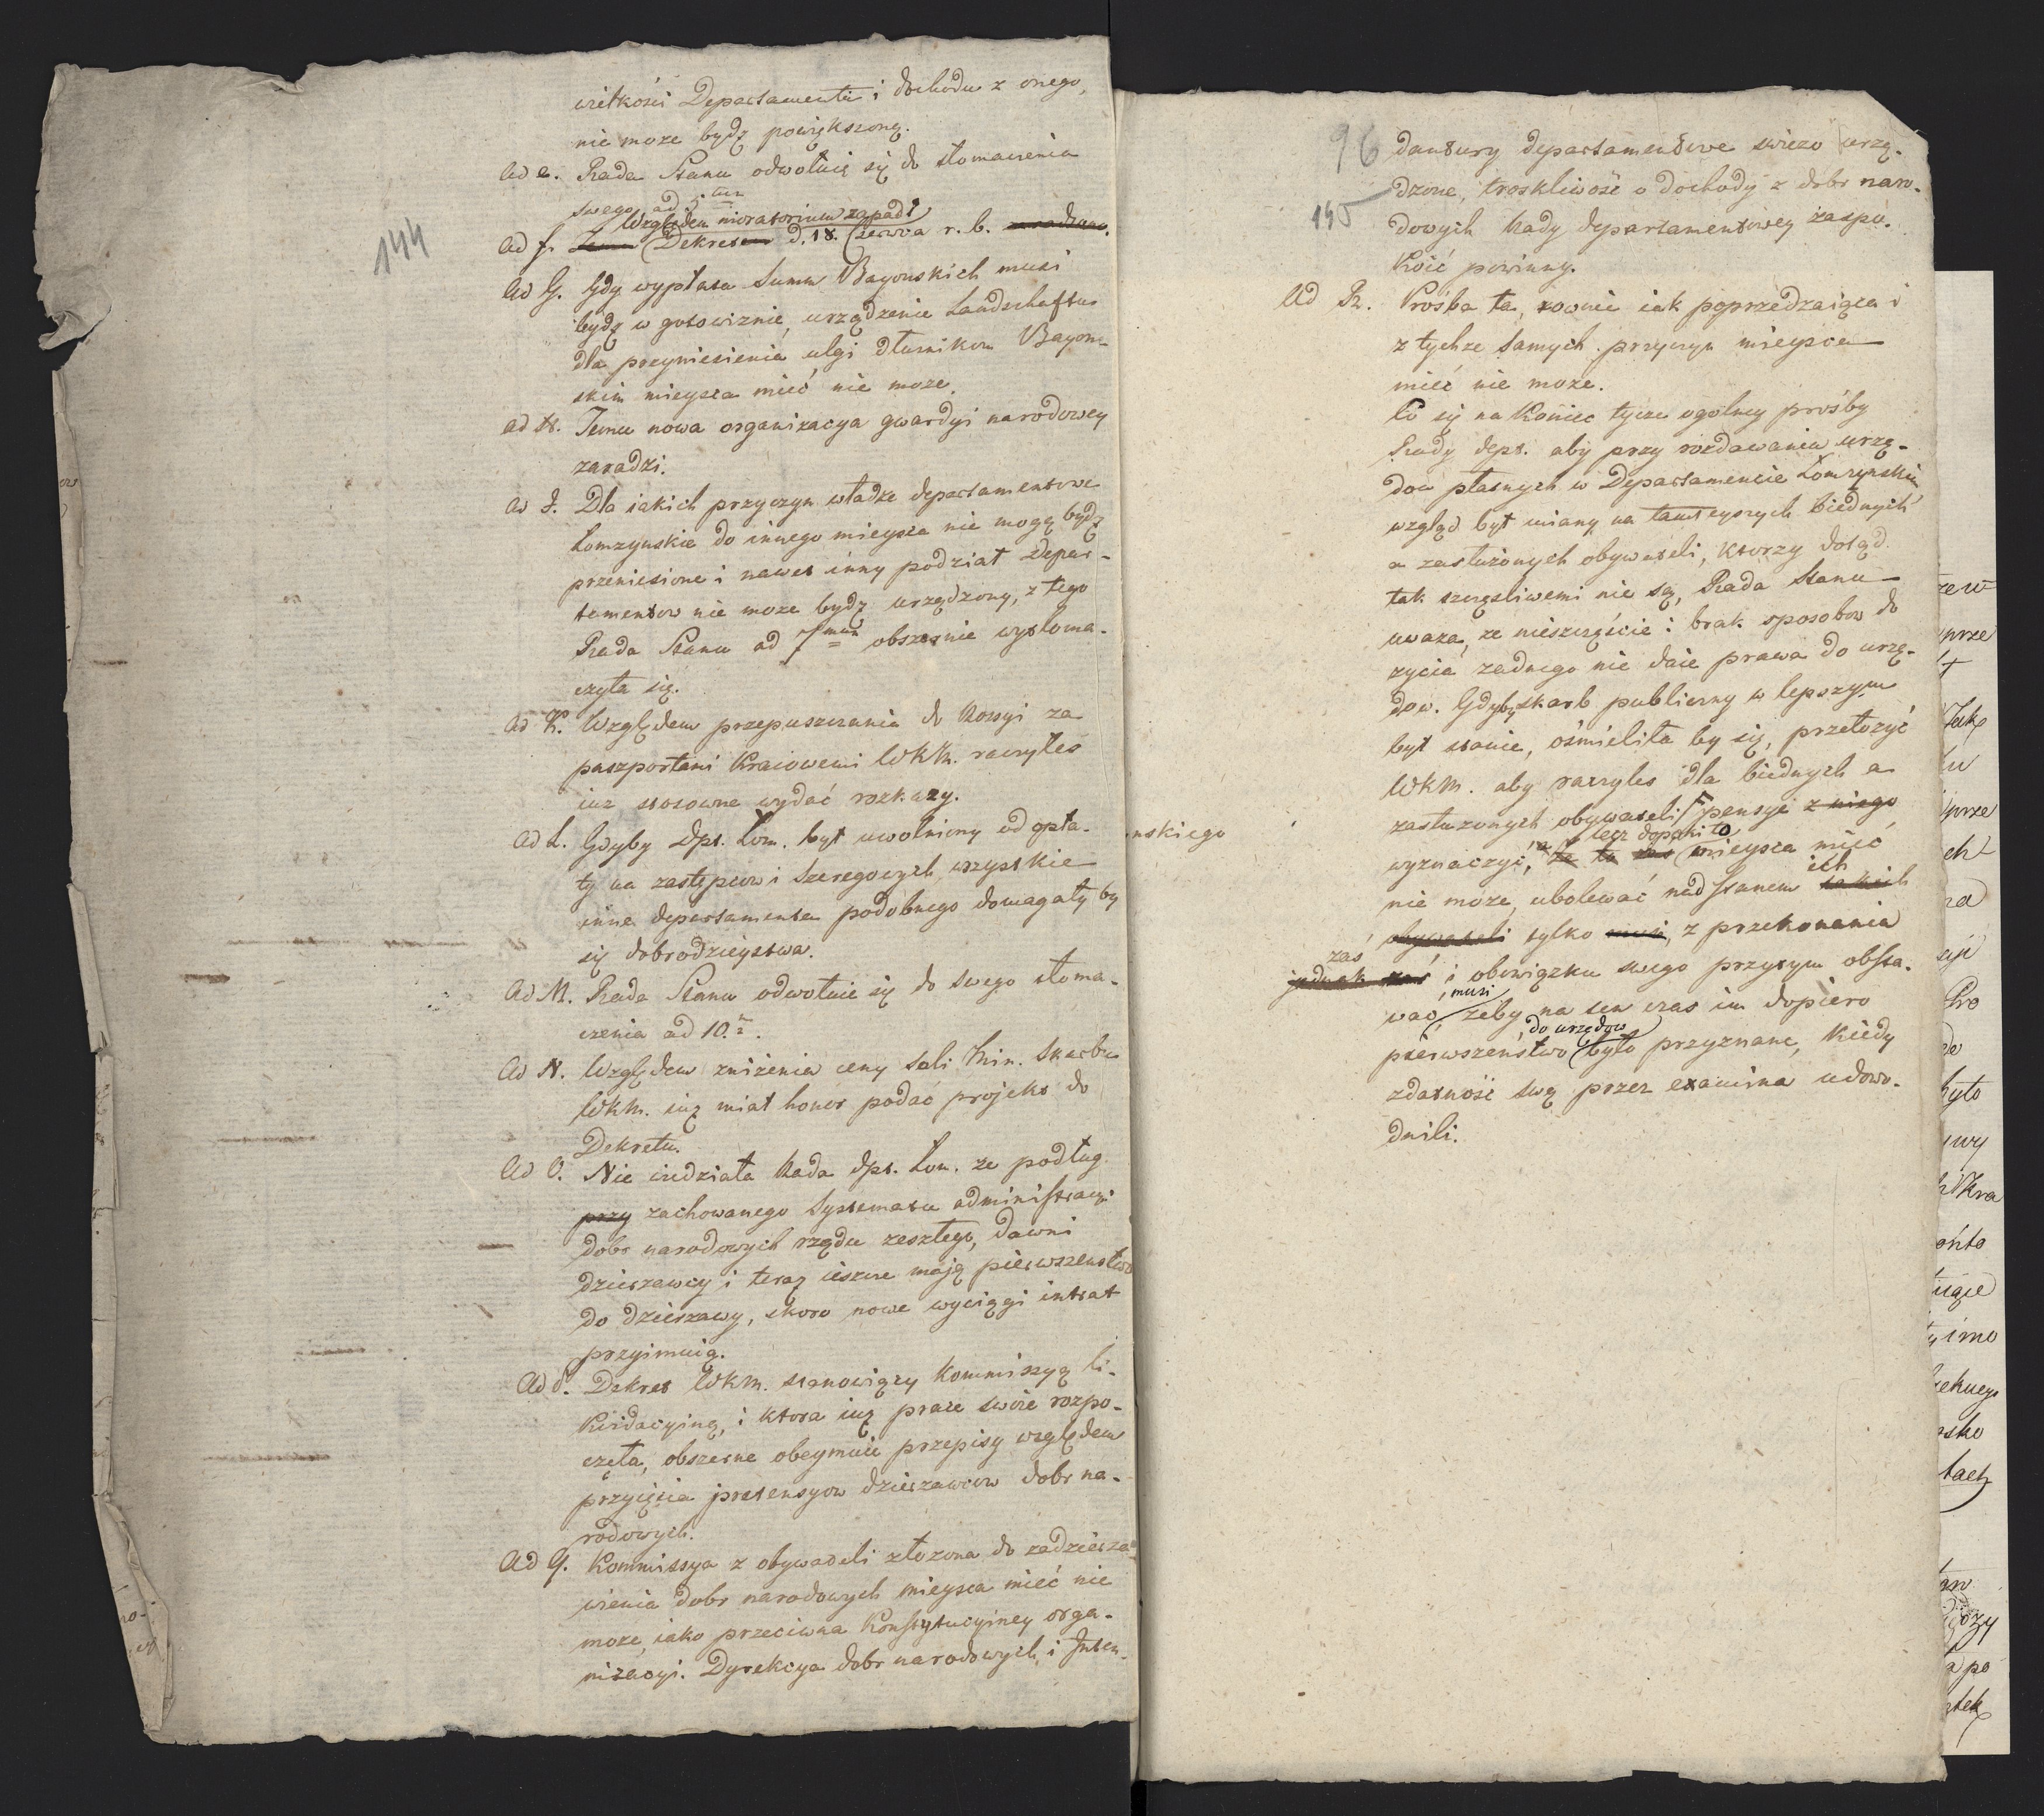 144
wielkości Departamentu i dochodu z onego,
nie może bydź powiększoną.
Ad e. Rada Stanu odwołuie się do tłomaczenia
swego ad 5tum
Względem moratorium zapadł
Ad f. Dekretem d. 18. Czerwca r. b. zaradzono.
Ad G. Gdy wypłata Summ Bayonskich musi
bydź w gotowiznie, urządzenie Landschaftu
dla przyniesienia ulgi dłużnikom Bayon-
skim mieysca mieć nie może.
Ad H. Temu nowa organizacya gwardyi narodowey
zaradzi.
Ad I. Dla iakich przyczyn władze departamentowe
Łomzynskie do innego mieysca nie mogą bydź
przeniesione i nawet inny podział Depar-
tamentow nie może bydź urządzony, z tego
Rada Stanu ad 7mum obszernie wytłoma-
czyła się.
Ad K. Względem przepuszczania do Rossyi za
paszportami Kraiowemi WKM. raczyłeś
iuż stosowne wydać rozkazy.
Ad L. Gdyby Dpt. Łom. był uwolniony od opła-
ty na zastępcow i szeregowych, wszystkie
inne departamenta podobnego domagały by
się dobrodzieystwa.
Ad M. Rada Stanu odwołuie się do swego tłoma-
czenia ad 10.
Ad N. Względem zniżenia ceny soli Min. Skarbu
WKM. iuż miał honor podać projekt do
Dekretu.
Ad O. Nie wiedziała Rada dpt. Łom. ze podług
przy zachowanego Systematu administracyi
dobr narodowych rządu zeszłego, dawni
dzierzawcy i teraz ieszcze mają pierwszenstwo
do dzierzawy, skoro nowe wyciągi intrat
przyimuią.
Dekret WKM. stanowiący Kommissyą li-
kwidacyiną, i ktora iuż prace swoie rozpo-
częła, obszerne obeymuie przepisy względem
przyięcia pretensyow dzierzawcow dobr na-
rodowych.
Ad Q. Kommissya z obywateli złożona do zadzierza-
wienia dobr narodowych mieysca mieć nie
może, iako przeciwna Konstytucyiney orga-
nizacyi. Dyrekcya dobr narodowych i Inten-
nskiego
96
145
dantury departamentowe swiezo urzą-
dzone, troskliwość o dochody z dobr naro-
dowych Rady departamentowey zaspo-
koić powinny.
Ad R. Prośba ta, rownie iak poprzedzaiąca i
z tychze samych przyczyn mieysca
mieć nie może.
Co się na koniec tycze ogolney prośby
Rady dept. aby przy rozdawaniu urzę-
dow płatnych w Departamencie Łomzynskim
wzgląd był miany na tamteyszych biednych
a zasłużonych obywateli, ktorzy dotąd
tak szczęsliwemi nie są, Rada Stanu
uważa, ze nieszczęście i brak sposobow do
życia zadnego nie daie prawa do urzę-
dow. Gdyby skarb publiczny w lepszym
był stanie, ośmieliła by się, przełożyć
WKM. aby raczyłeś dla biednych a
zasłużonych obywateli pensye z niego
lecz dopoki to
wyznaczyć, ze to mieysca mieć
ich
nie może, ubolewać nad stanem takich
obywateli tylko musi, z przekonania
zaś
jednak i obowiązku swego przytym obsta-
musi
wać, żeby na ten czas im dopiero
do urzędow
pierwszeństwo było przyznane, kiedy
zdatność swą przez examina udowo-
dnili.